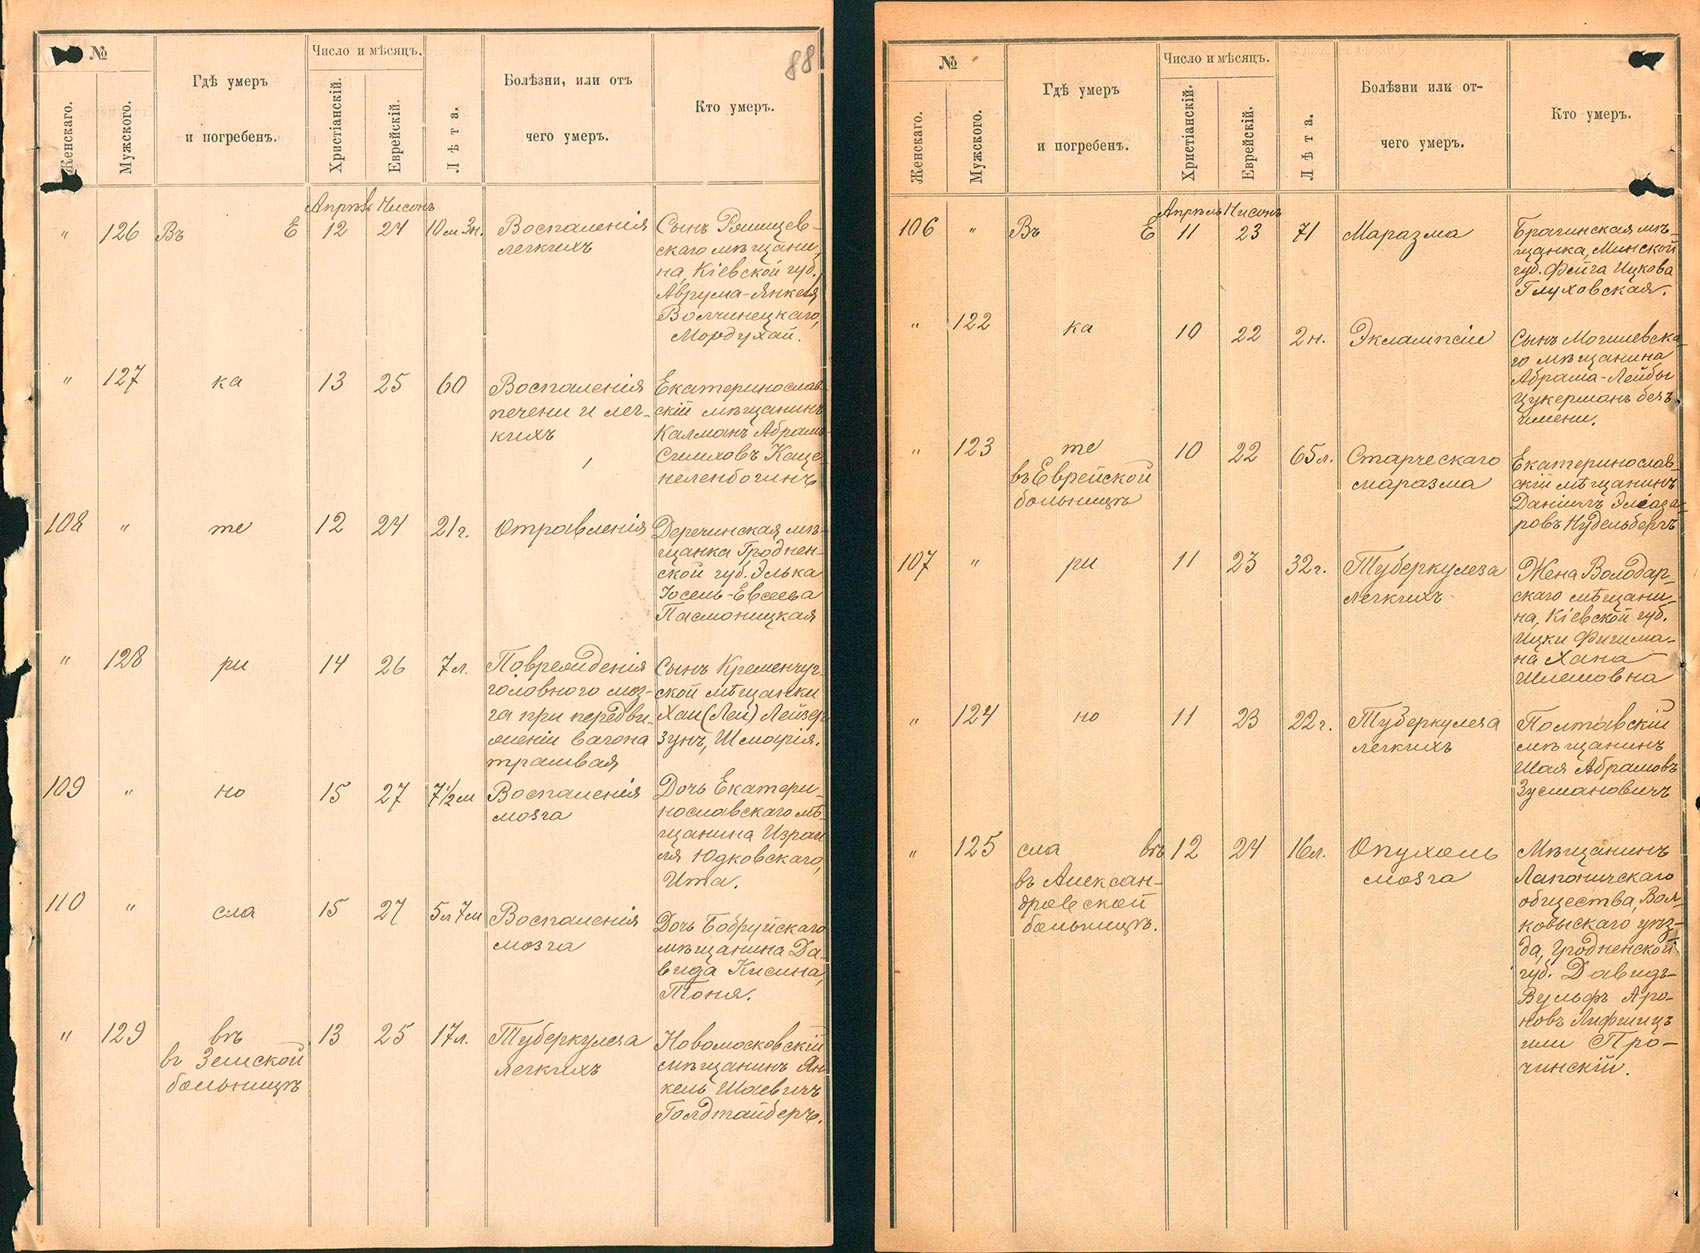 88
№
Число и мѣсяцъ.
Женскаго.
Мужского.
Гдѣ умеръ
и погребенъ.
Христіанскій.
Еврейскій.
Лѣта.
Болѣзни, или отъ
чего умеръ.
Кто умеръ.
Апрѣль Нисонъ
" 126 Въ Е 12 24 10 м 3н. Воспаленія
легкихъ
Сынъ Ряшщев-
скаго мѣщани-
на, Кіевской губ.,
Аврума-Янкеля
Волчинецкаго,
Мордухай.
" 127 ка 13 25 60 Воспаленія
печени и лег-
кихъ
Екатеринослав-
скій мѣщанинъ
Калманъ Абрамъ-
Каце-
неленбогинъ
108 " те 12 24 21г. Отравленія
Деречинская мѣ-
щанка Гроднен-
ской губ. Элька
Іосель-Евсеева
Пасмоницкая
" 128 ри 14 26 7л. Поврежденія
головного моз-
га при передви-
женіи вагона
трамвая
Сынъ Кременчуг-
ской мѣщанки
Хаи (Леи) Лейзер-
зунъ, Шмарія.
109 " но 15 27 7½м Воспаленія
мозга
Дочь Екатери-
нославскаго мѣ-
щанина Израи-
ля Юдковскаго,
Ита.
110 " сла 15 27 5л 7м Воспаленія
мозга
Дочь Бобруйскаго
мѣщанина Да-
вида Кисина,
Тоня.
" 129 въ 13 25 17л. Туберкулеза
легкихъ
въ Земской
больницѣ
Новомосковскій
мѣщанинъ Ян-
кель Шаевичъ
Голдтайберъ.
№
Число и мѣсяцъ.
Женскаго.
Мужского.
Гдѣ умеръ
и погребенъ.
Христіанскій.
Еврейскій.
Лѣта.
Болѣзни или от-
чего умеръ.
Кто умеръ.
Апрѣль Нисонъ
106 " Въ Е 11 23 71 Маразма
Брагинская мѣ-
щанка, Минской
губ. Фейга Ицкова
Глуховская.
" 122 ка 10 22 2н. Эклампсіи
Сынъ Могилевска-
го мѣщанина
Абрама-Лейбы
Цукерманъ безъ
имени.
" 123 те 10 22 65л. Старческаго
маразма
въ Еврейской
больницѣ
Екатеринослав-
скій мѣщанинъ
Даніилъ Элеаза-
ровъ Нудельбергъ
107 " ри 11 23 32г. Туберкулеза
легкихъ
Жена Володар-
скаго мѣщани-
на, Кіевской губ.
Ицки Фишма-
на Хана
Шлемовна
" 124 но 11 23 22г. Туберкулеза
легкихъ
Полтавскій
мѣщанинъ
Шая Абрамовъ
Зусмановичъ
" 125 сла въ 12 24 16л. Опухоль
мозга
въ Алексан-
дровской
больницѣ.
Мѣщанинъ
Лапеничскаго
общества, Вол-
ковыскаго уѣз-
да, Гродненской
губ. Давидъ-
Вульфъ Аро-
новъ Лифшицъ
или Про-
чинскій.